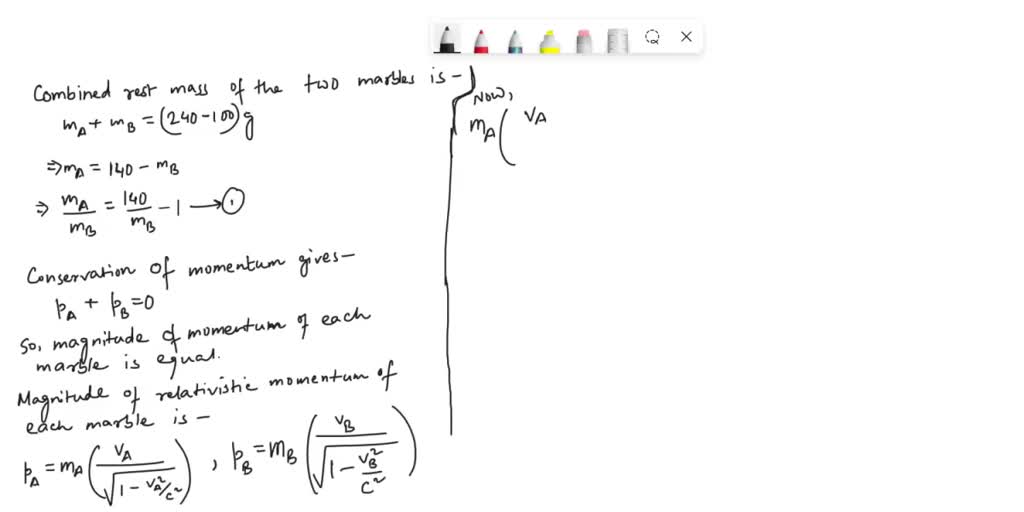 Combined rest mass of the two marbles is-
mA + mB = (240-100)g
⇒ mA = 140 - mB
⇒ mA/mB = 140/mB - 1 → ①
Conservation of momentum gives-
pA + pB = 0
So, magnitude of momentum of each
marble is equal.
Magnitude of relativistic momentum of
each marble is -
pA = mA (vA / √(1 - vA²/c²)), pB = mB (vB / √(1 - vB²/c²))
NOW,
mA ( vA